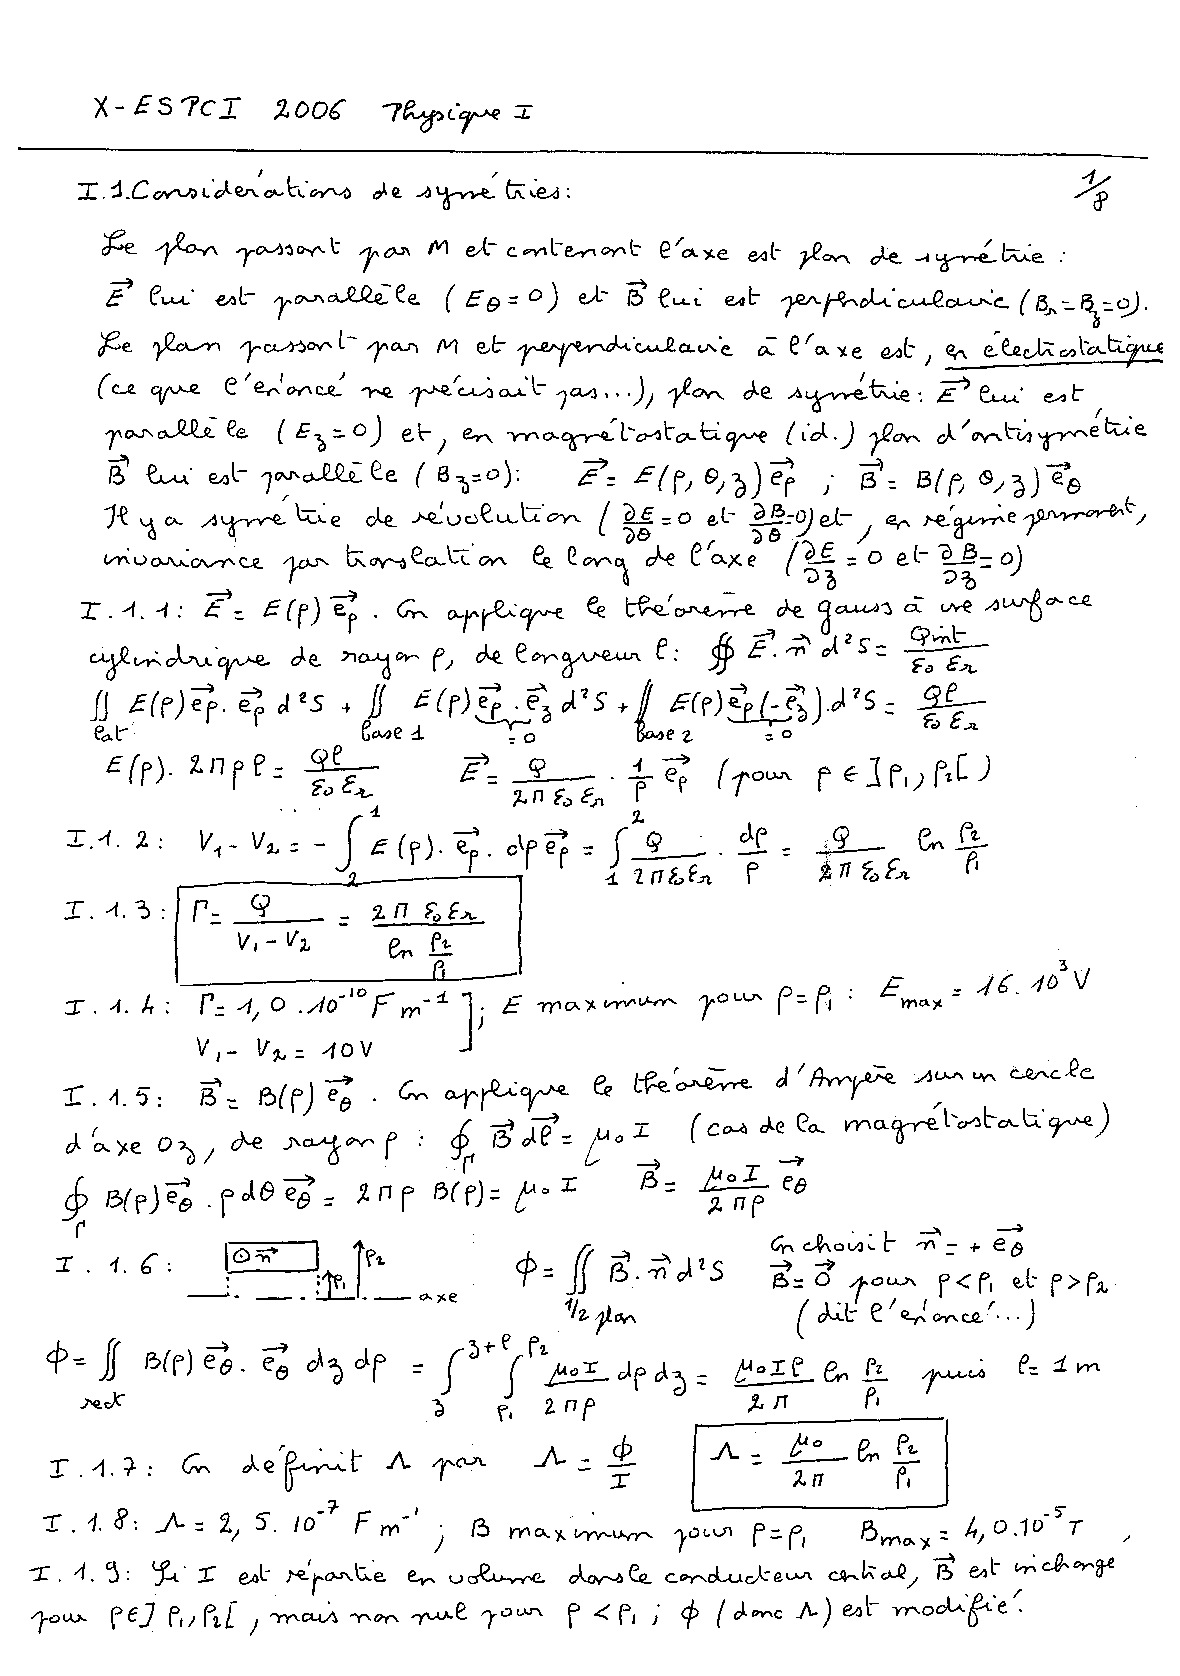 X-ESPCI 2006 Physique I
I.1. Considérations de symétries :
1/8
Le plan passant par M et contenant l'axe est plan de symétrie :
E⃗ lui est parallèle (E_θ = 0) et B⃗ lui est perpendiculaire (B_r = B_z = 0).
Le plan passant par M et perpendiculaire à l'axe est, en électrostatique
(ce que l'énoncé ne précisait pas...), plan de symétrie : E⃗ lui est
parallèle (E_z = 0) et, en magnétostatique (id.) plan d'antisymétrie
B⃗ lui est parallèle (B_z = 0) : E⃗ = E(ρ, θ, z) e⃗_ρ ; B⃗ = B(ρ, θ, z) e⃗_θ
Il y a symétrie de révolution (∂E/∂θ = 0 et ∂B/∂θ = 0) et, en régime permanent,
invariance par translation le long de l'axe (∂E/∂z = 0 et ∂B/∂z = 0)
I.1.1 : E⃗ = E(ρ) e⃗_ρ. On applique le théorème de gauss à une surface
cylindrique de rayon ρ, de longueur l : ∯ E⃗.n⃗ d²S = Qint/(ε₀ ε_r)
∬_lat E(ρ) e⃗_ρ . e⃗_ρ d²S + ∬_base 1 E(ρ) e⃗_ρ . e⃗_z (= 0) d²S + ∬_base 2 E(ρ) e⃗_ρ (-e⃗_z) (= 0) . d²S = Ql/(ε₀ ε_r)
E(ρ). 2πρl = Ql/(ε₀ ε_r) E⃗ = Q/(2π ε₀ ε_r) . 1/ρ e⃗_ρ (pour ρ ∈ ]ρ₁, ρ₂[)
I.1.2 : V₁ - V₂ = - ∫₂¹ E(ρ). e⃗_ρ . dρ e⃗_ρ = ∫₁² Q/(2π ε₀ ε_r) . dρ/ρ = Q/(2π ε₀ ε_r) ln ρ₂/ρ₁
I.1.3 : Γ = Q/(V₁ - V₂) = 2π ε₀ ε_r/(ln ρ₂/ρ₁)
I.1.4 : Γ = 1,0 . 10⁻¹⁰ F m⁻¹ ] ; E maximum pour ρ = ρ₁ : E_max = 16. 10³ V
V₁ - V₂ = 10V
I.1.5 : B⃗ = B(ρ) e⃗_θ. On applique le théorème d'Ampère sur un cercle
d'axe Oz, de rayon ρ : ∮_Γ B⃗ dl⃗ = μ₀ I (cas de la magnétostatique)
∮_Γ B(ρ) e⃗_θ . ρ dθ e⃗_θ = 2πρ B(ρ) = μ₀ I B⃗ = μ₀ I/(2πρ) e⃗_θ
I.1.6 : ⊙ n⃗ ρ₁ ρ₂ axe Φ = ∬_1/2 plan B⃗.n⃗ d²S On choisit n⃗ = + e⃗_θ
B⃗ = 0⃗ pour ρ < ρ₁ et ρ > ρ₂
(dit l'énoncé...)
Φ = ∬_rect B(ρ) e⃗_θ . e⃗_θ dz dρ = ∫_z^{z+l} ∫_ρ₁^ρ₂ μ₀ I/(2πρ) dρ dz = μ₀ I l/(2π) ln ρ₂/ρ₁ puis l = 1 m
I.1.7 : On définit Λ par Λ = Φ/I Λ = μ₀/(2π) ln ρ₂/ρ₁
I.1.8 : Λ = 2,5. 10⁻⁷ F m⁻¹ ; B maximum pour ρ = ρ₁ B_max = 4,0.10⁻⁵ T
I.1.9 : Si I est répartie en volume dans le conducteur central, B⃗ est inchangé
pour ρ ∈ ]ρ₁, ρ₂[, mais non nul pour ρ < ρ₁ ; Φ (donc Λ) est modifié.